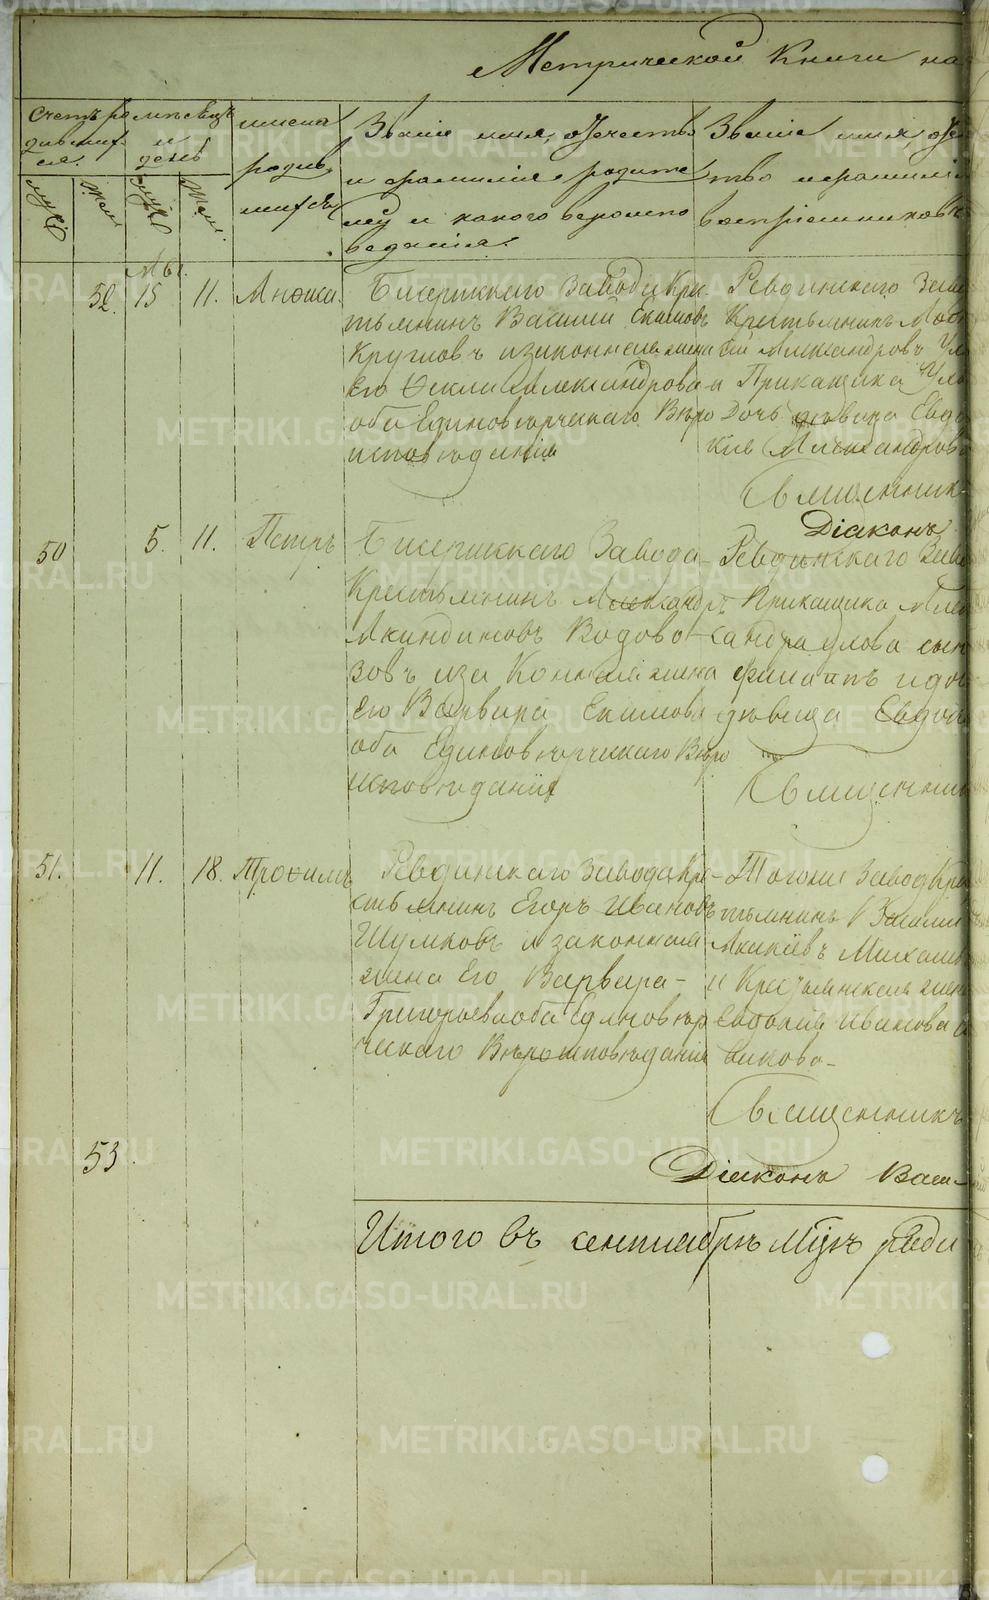 Метрической Книги на
Счетъ ро
дивших
ся.
мѣсецъ
и
день
имена
родив
шихся
Званіе имя, отчество
и фамилія родите
лей и какого вероиспо
веданія.
Званіе имя, оте
тво и фамилія
воспріемниковъ
Муж.
Жен.
Муж.
Жен.
52. 15 11. Анѳиса.
Бисертскаго Завода Кре
тьянинъ Василій Екимовъ
Кругловъ и законная жена
Его Ѳекла Александрова
оба Единовѣрческаго Вѣро
исповѣданія
Ревдинскаго Заво
Крестьянинъ
Александровъ
и Прикащика
Дочь дѣвица Евдо
кія Александрова
Священникъ
Діаконъ
50 5. 11. Петръ
Бисертскаго Завода
Крестьянинъ Александръ
Акиндиновъ Водово
зовъ и за Конная жена
Его Варвара Екимова
оба Единовѣрческаго Вѣро
исповѣданія
Ревдинскаго Заво
Прикащика Алек
сандра Улова сын
Филипъ и доч
дѣвица Евдок
Священник
51. 11. 18. Трофимъ
Ревдинскаго Завода Кре
стьянинъ Егоръ Ивановъ
Шумковъ и законная
жена Его Варвара
Григорьева оба Единовѣр
ческаго Вѣроисповѣданія
Тогоже Завод Кре
тьянинъ Василій
Акакіевъ
и Крестьянская жена
Евдокія Иванова
Священникъ
53
Діаконъ Васи
Итого въ сентиабрѣ Мцѣ роди
METRIKI.GASO-URAL.RU